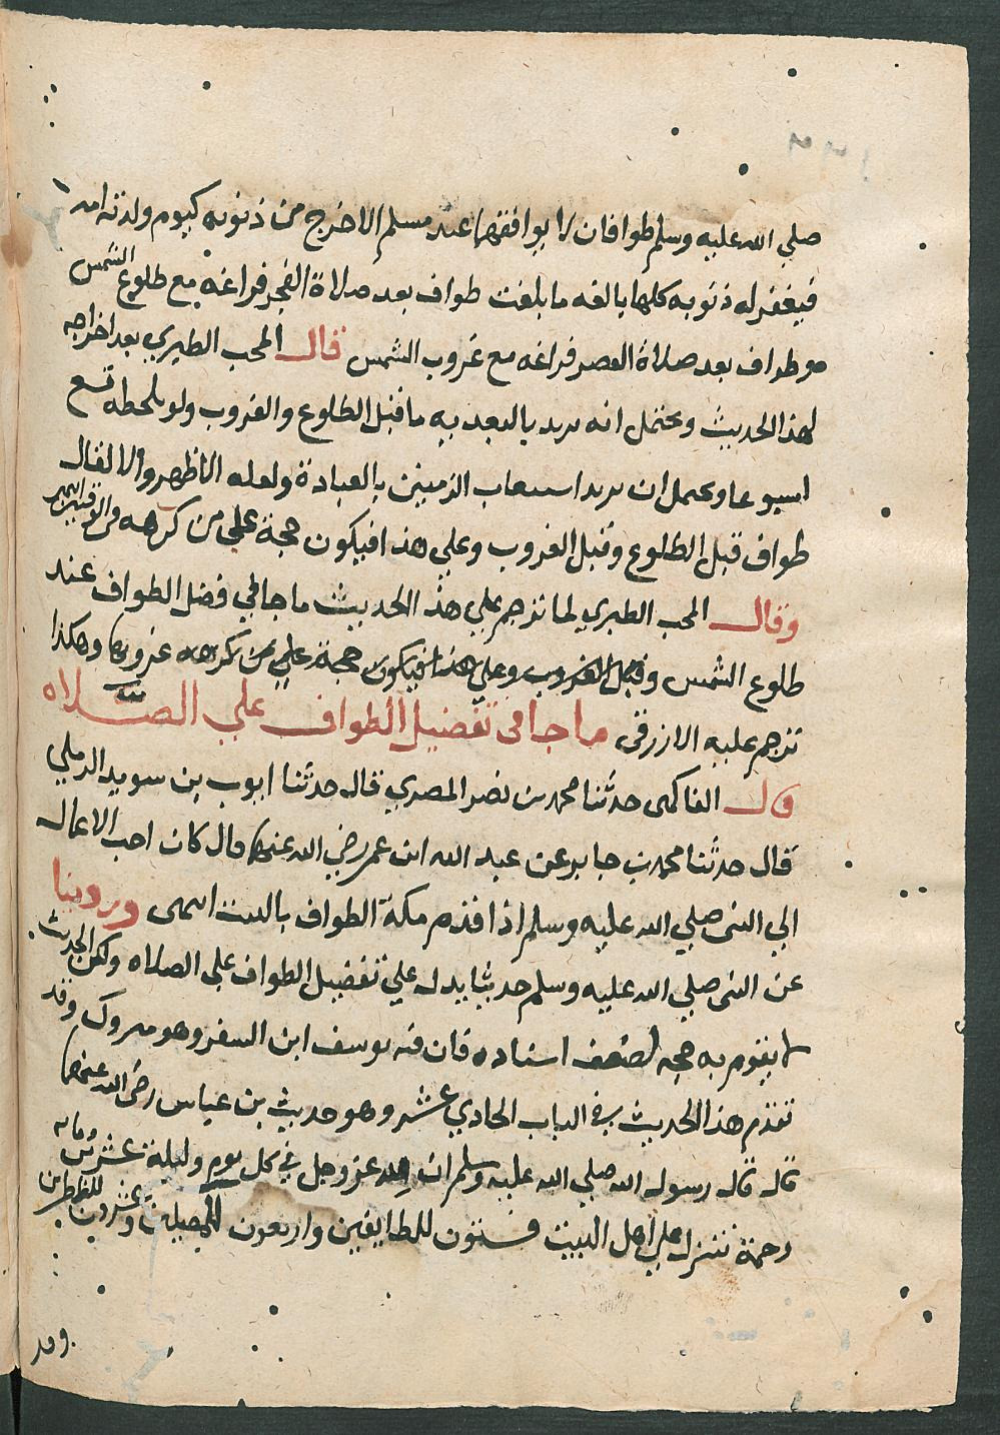 صلي الله عليه وسلم طوافان لا يوافقهما عند مسلم الا خرج من ذنوبه كيوم ولدته امه
فيغفر له ذنوبه كلها بالغه ما بلغت طواف بعد صلاة الفجر فراغه مع طلوع الشمس
وطواف بعد صلاة العصر فراغه مع غروب الشمس قال المحب الطبري بعد اخراجه
لهذا الحديث ويحتمل انه يريد بالبعديه ما قبل الطلوع والغروب ولو بلحظه تسع
اسبوعا ويحتمل ان يريد استيعاب الزمنين بالعبادة ولعله الاظهر والا لقال
طواف قبل الطلوع وقبل الغروب وعلي هذا فيكون حجة علي من كرهه في الوقتين انتهى
وقال المحب الطبري لما ترجم علي هذا الحديث ما جا في فضل الطواف عند
طلوع الشمس وقبل الغروب وعلي هذا فيكون حجة علي من كرهه غروبها وهكذا
ترجم عليه الازرقى ما جا فى تفضيل الطواف علي الصلاه
قال الفاكهى حدثنا محمد بن نصر المصري قال حدثنا ايوب بن سويد الرملي
قال حدثنا محمد بن جابر عن عبد الله ابن عمر رضي الله عنهما قال كان احب الاعمال
الي النبى صلي الله عليه وسلم اذا قدم مكة الطواف بالبيت انتهى وروينا
عن النبى صلي الله عليه وسلم حديثا يدل علي تفضيل الطواف على الصلاه ولكن الحديث
لا يقوم به حجه لضعف اسناده فان فيه يوسف ابن السفر وهو متروك وقد
تقدم هذا الحديث في الباب الحادي عشر وهو حديث بن عباس رضى الله عنهما
قال قال رسول الله صلي الله عليه وسلم ان لله عز وجل في كل يوم وليلة عشرين ومايه
رحمة تنزل علي اهل البيت فستون للطايفين واربعون للمصلين وعشرون للناظرين
وقد